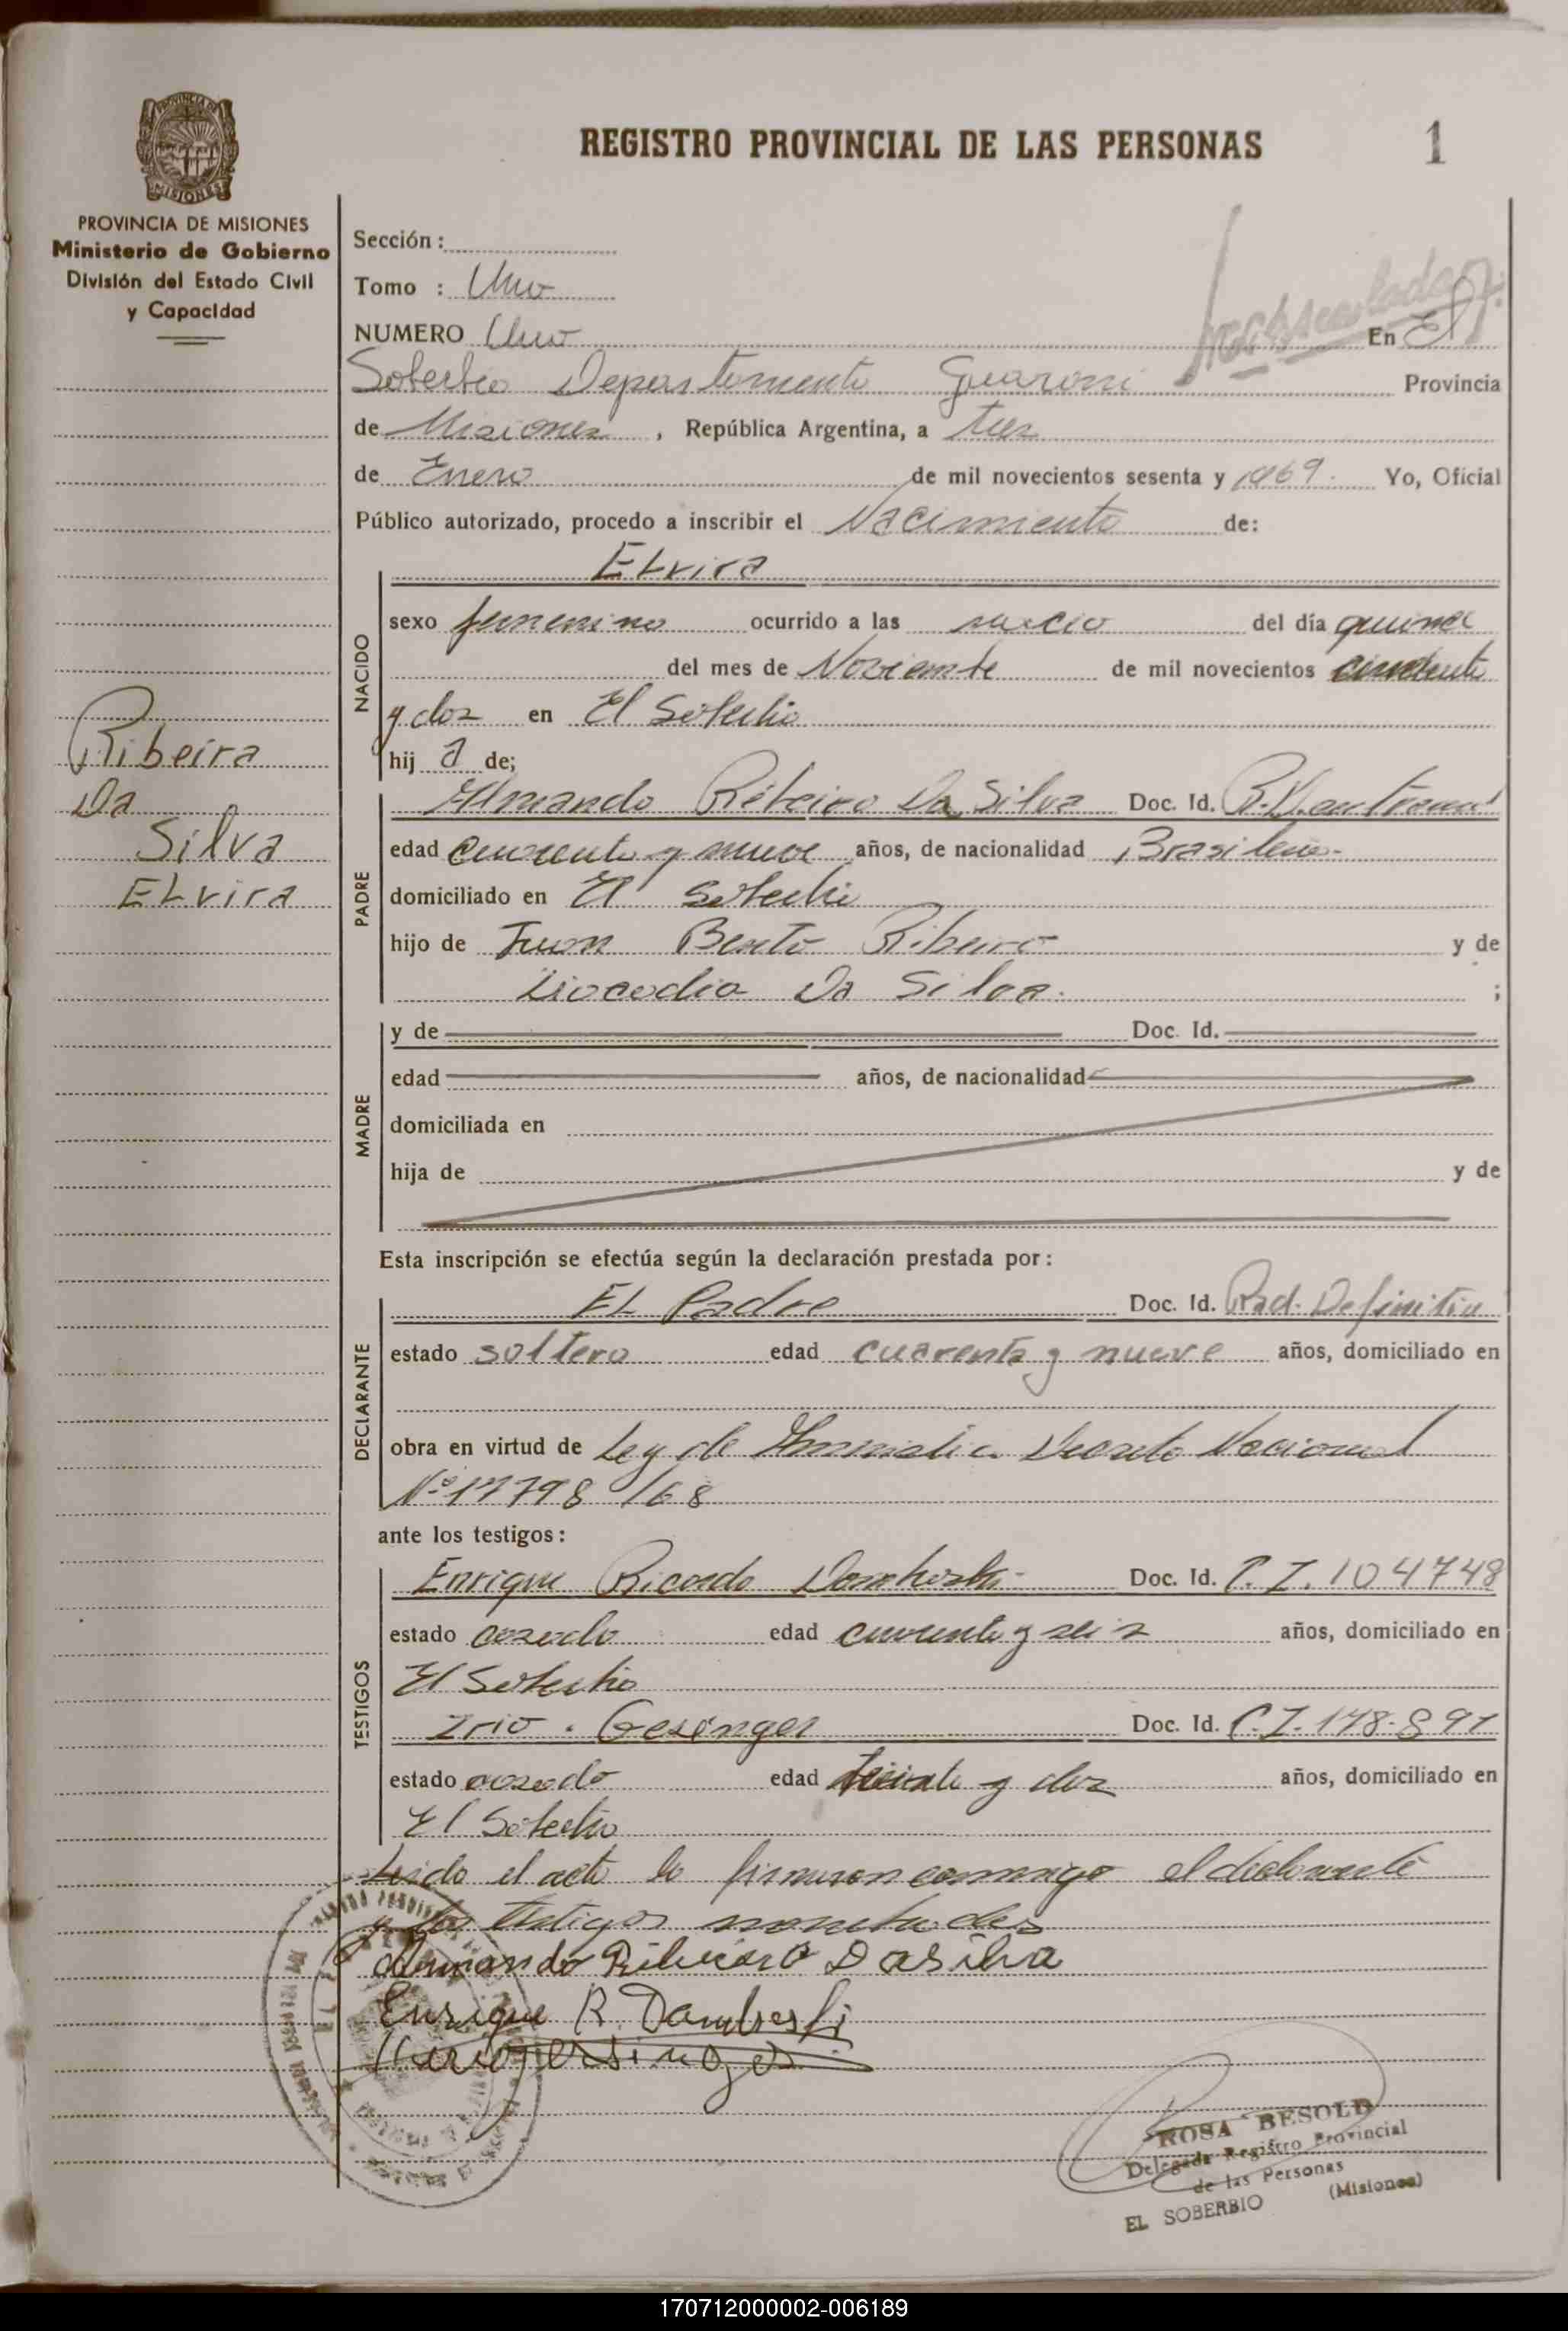 PROVINCIA DE
MISIONES
PROVINCIA DE MISIONES
Ministerio de Gobierno
División del Estado Civil
y Capacidad
REGISTRO PROVINCIAL DE LAS PERSONAS
1
Sección :
Tomo : Uno
NUMERO Uno En El
Soberbio Departamento Guarani Provincia
de Misiones , República Argentina, a tres
de Enero de mil novecientos sesenta y 1969. Yo, Oficial
Público autorizado, procedo a inscribir el Nacimiento de:
ELvira
NACIDO
sexo femenino ocurrido a las del día quince
del mes de Noviembre de mil novecientos
y dos en El Soberbio
hij a de;
Ribeira
Da
Silva
ELvira
PADRE
Armando Ribeiro Da Silva Doc. Id.
edad cuarenta y nueve años, de nacionalidad Brasilera.
domiciliado en El Soberbio
hijo de Juan Bento Ribeiro y de
Da Silva. ;
MADRE
y de Doc. Id.
edad años, de nacionalidad
domiciliada en
hija de y de
Esta inscripción se efectúa según la declaración prestada por :
DECLARANTE
EL Padre Doc. Id. Rad. Definitiva
estado soltero edad cuarenta y nueve años, domiciliado en
obra en virtud de Ley de Amnistia Decreto Nacional
Nº 17798/68
ante los testigos :
TESTIGOS
Enrique Ricardo Dombroski Doc. Id. C.I. 104748
estado casado edad cuarenta y seis años, domiciliado en
El Soberbio
Irio. Gesinger Doc. Id. C.I. 178.897
estado casado edad treinta y dos años, domiciliado en
El Soberbio
Leido el acta la firmaron conmigo el declarante
y los testigos nombrados
Armando Ribeiro Da silva
Enrique R. Dambroski
ROSA BESOLD
Delegada Registro Provincial
de las Personas
EL SOBERBIO (Misiones)
170712000002-006189